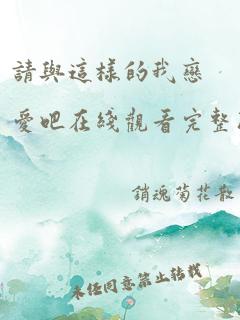 請與這樣的我戀
愛吧在綫觀看完整
銷魂菊花散
未任同意禁止转载